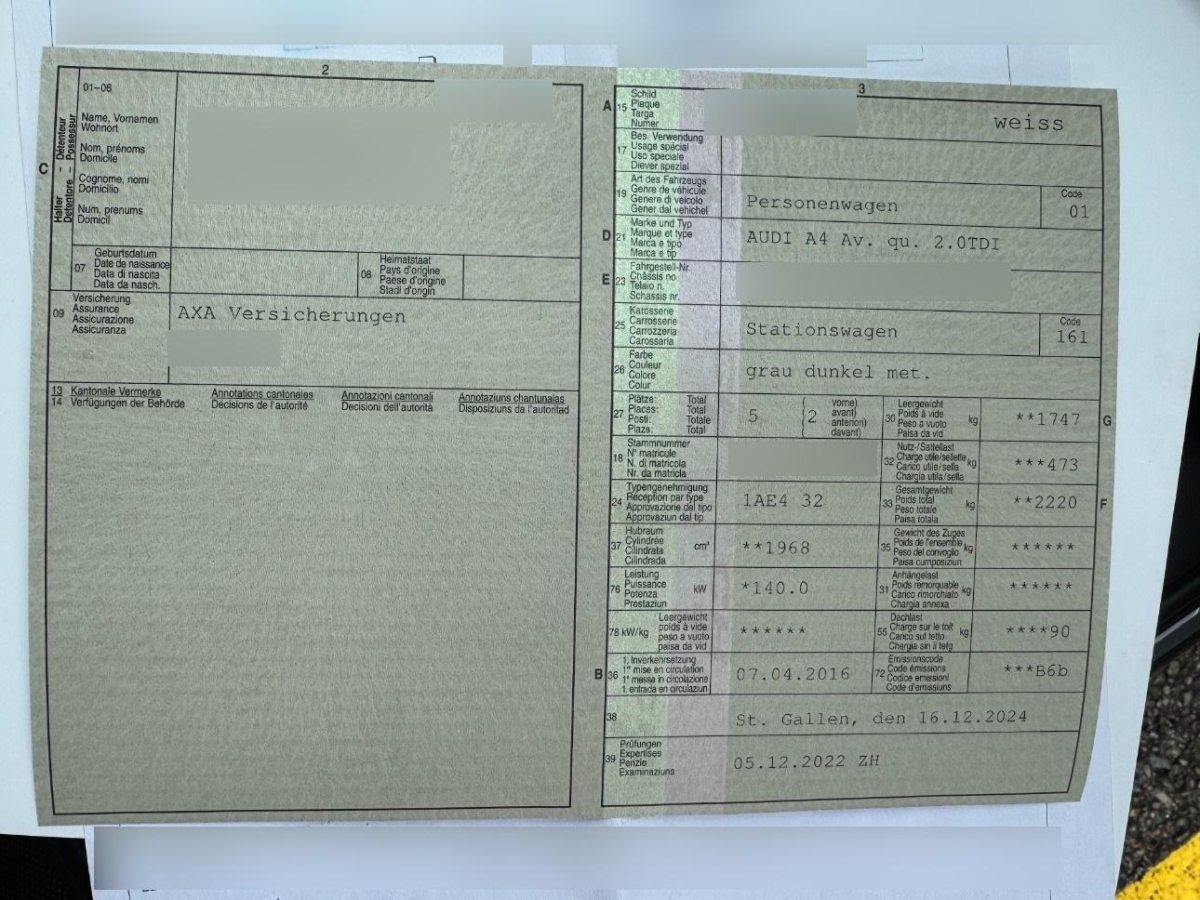 2
01–06
Name, Vornamen
Wohnort
Nom, prénoms
Domicile
Cognome, nomi
Domicilio
Num, prenums
Domicil
C
Halter – Détenteur
Detentore – Possessur
07
Geburtsdatum
Date de naissance
Data di nascita
Data da nasch.
08
Heimatstaat
Pays d'origine
Paese d'origine
Stadi d'origin
09
Versicherung
Assurance
Assicurazione
Assicuranza
AXA Versicherungen
13 Kantonale Vermerke Annotations cantonales Annotazioni cantonali Annotaziuns chantunalas
14 Verfügungen der Behörde Décisions de l'autorité Decisioni dell'autorità Disposiziuns da l'autoritad
3
A 15
Schild
Plaque
Targa
Numer
weiss
17
Bes. Verwendung
Usage spécial
Uso speciale
Diever spezial
19
Art des Fahrzeugs
Genre de véhicule
Genere di veicolo
Gener dal vehichel
Personenwagen
Code
01
D 21
Marke und Typ
Marque et type
Marca e tipo
Marca e tip
AUDI A4 Av. qu. 2.0TDI
E 23
Fahrgestell-Nr.
Châssis no
Telaio n.
Schassis nr.
25
Karosserie
Carrosserie
Carrozzeria
Carossaria
Stationswagen
Code
161
26
Farbe
Couleur
Colore
Colur
grau dunkel met.
27
Plätze: Total
Places: Total
Posti: Totale
Plazs: Total
5 ( 2
vorne)
avant)
anteriori)
davant)
30
Leergewicht
Poids à vide
Peso a vuoto
Paisa da vid
kg
**1747
G
18
Stammnummer
N° matricule
N. di matricola
Nr. da matricla
32
Nutz-/Sattellast
Charge utile/sellette
Carico utile/sella
Chargia utila/sella
kg
***473
24
Typengenehmigung
Réception par type
Approvazione del tipo
Approvaziun dal tip
1AE4 32
33
Gesamtgewicht
Poids total
Peso totale
Paisa totala
kg
**2220
F
37
Hubraum
Cylindrée
Cilindrata
Cilindrada
cm³
**1968
35
Gewicht des Zuges
Poids de l'ensemble
Peso del convoglio
Paisa cumposiziun
kg
******
76
Leistung
Puissance
Potenza
Prestaziun
kW
*140.0
31
Anhängelast
Poids remorquable
Carico rimorchiato
Chargia annexa
kg
******
78 kW/kg
Leergewicht
poids à vide
peso a vuoto
paisa da vid
******
55
Dachlast
Charge sur le toit
Carico sul tetto
Chargia sin il tetg
kg
****90
B 36
1. Inverkehrsetzung
1re mise en circulation
1a messa in circolazione
1. entrada en circulaziun
07.04.2016
72
Emissionscode
Code émissions
Codice emissioni
Code d'emissiuns
***B6b
38
St. Gallen, den 16.12.2024
39
Prüfungen
Expertises
Perizie
Examinaziuns
05.12.2022 ZH